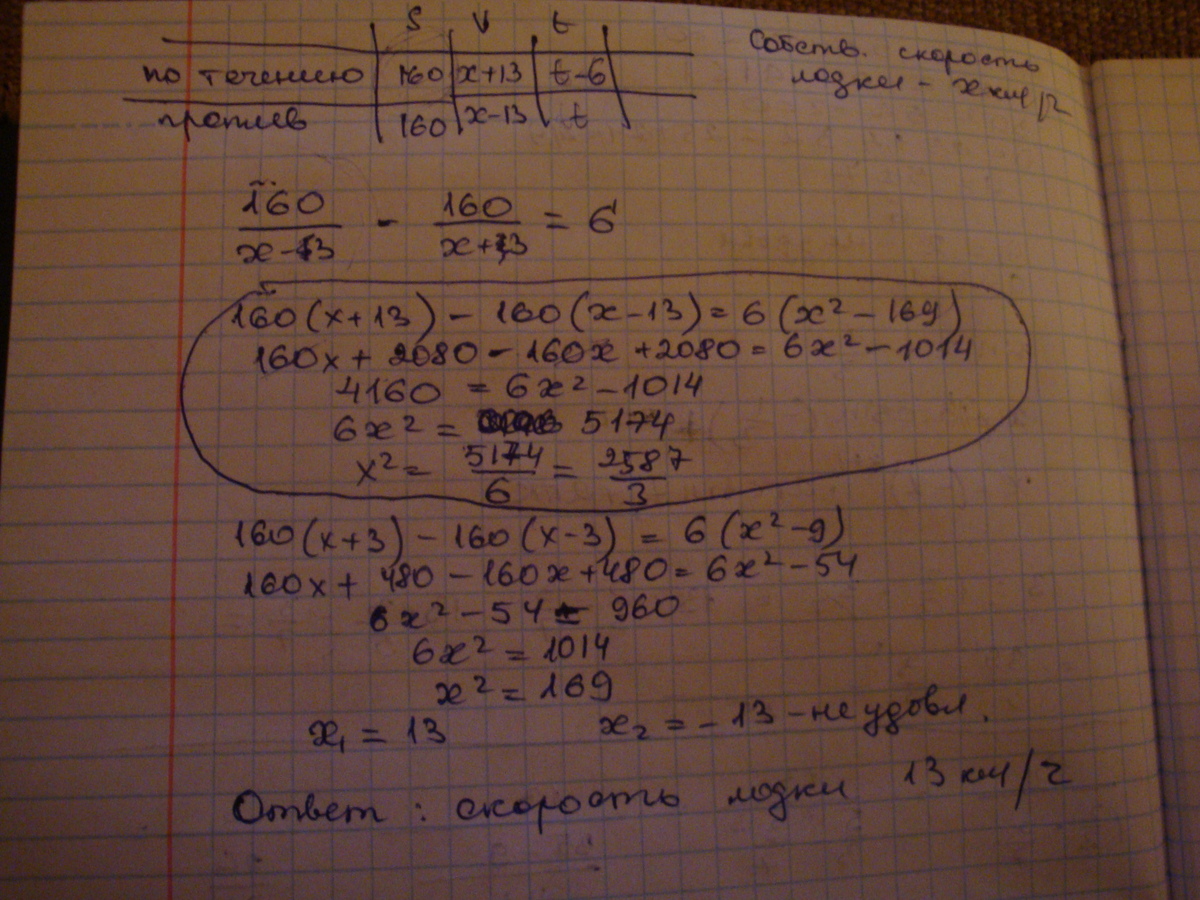 S V t
по течению 160 x+13 t-6
против 160 x-13 t
Собств. скорость
лодки - x км/ч
160/(x-13) - 160/(x+13) = 6
160(x+13) - 160(x-13) = 6(x² - 169)
160x + 2080 - 160x + 2080 = 6x² - 1014
4160 = 6x² - 1014
6x² = 5174
x² = 5174/6 = 2587/3
160(x+3) - 160(x-3) = 6(x² - 9)
160x + 480 - 160x + 480 = 6x² - 54
6x² - 54 = 960
6x² = 1014
x² = 169
x₁ = 13 x₂ = -13 - не удовл.
Ответ: скорость лодки 13 км/ч